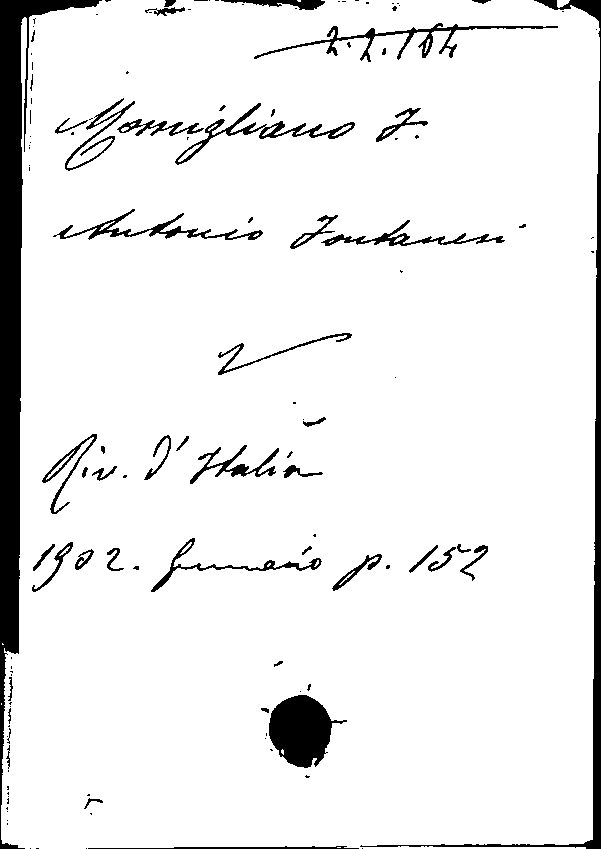 2.2.164
Momigliano F.
Antonio Fontanesi
Riv. d'Italia
1902. Gennaio p. 152